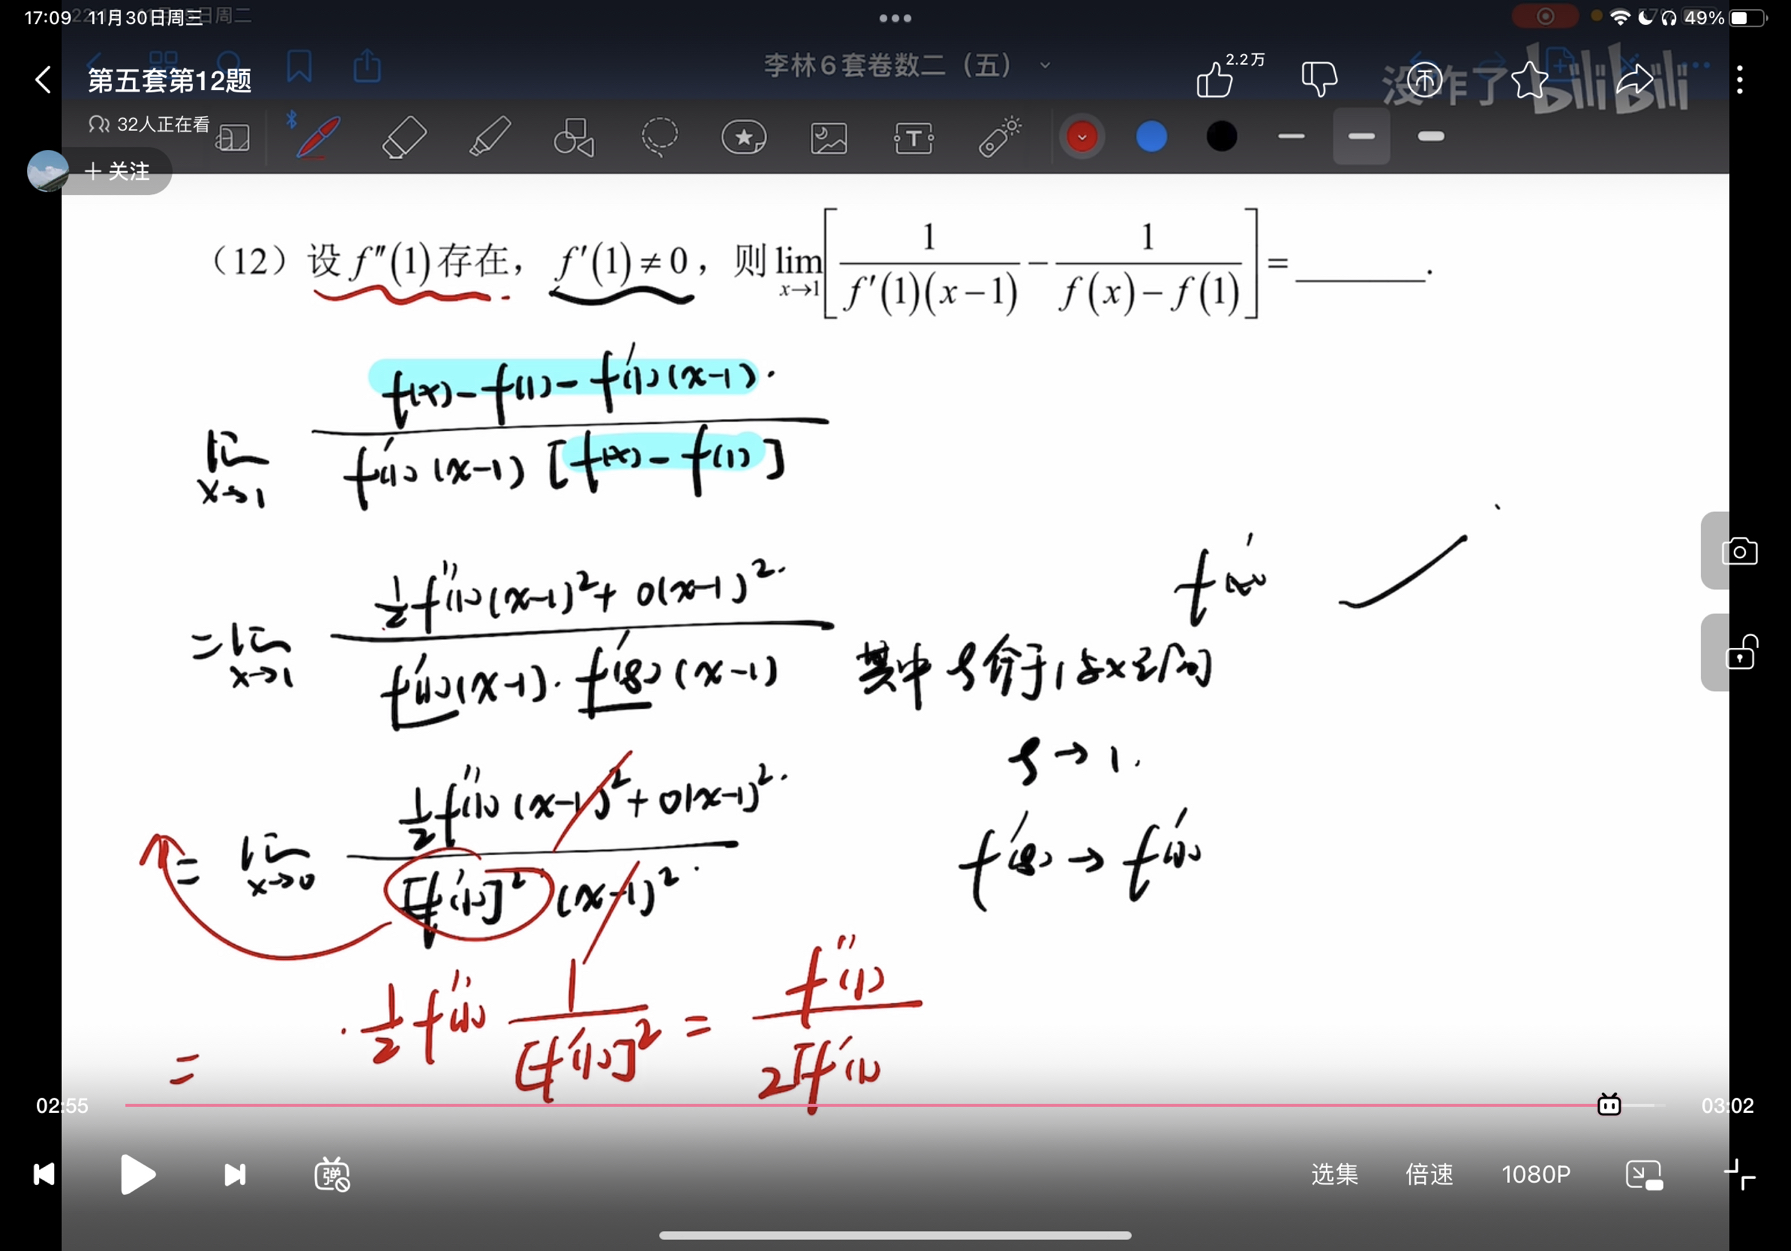 17:09 11月30日周三
49%
李林6套卷数二（五）
第五套第12题
2.2万
没咋了 bilibili
32人正在看
＋关注
（12）设 f″(1) 存在， f′(1) ≠ 0 ，则 lim x→1 [ 1 / f′(1)(x−1) − 1 / f(x)−f(1) ] = ______.
lim x→1 f(x)−f(1)−f′(1)(x−1). / f′(1)(x−1)[f(x)−f(1)]
f′(x)
= lim x→1 ½f″(1)(x−1)²+o(x−1)². / f′(1)(x−1)·f′(ξ)(x−1) 其中ξ介于1与x之间
ξ→1.
= lim x→0 ½f″(1)(x−1)²+o(x−1)². / [f′(1)]²(x−1)².
f′(ξ)→f′(1)
= ·½f″(1) 1 / [f′(1)]² = f″(1) / 2[f′(1)
02:55
03:02
弹
选集 倍速 1080P